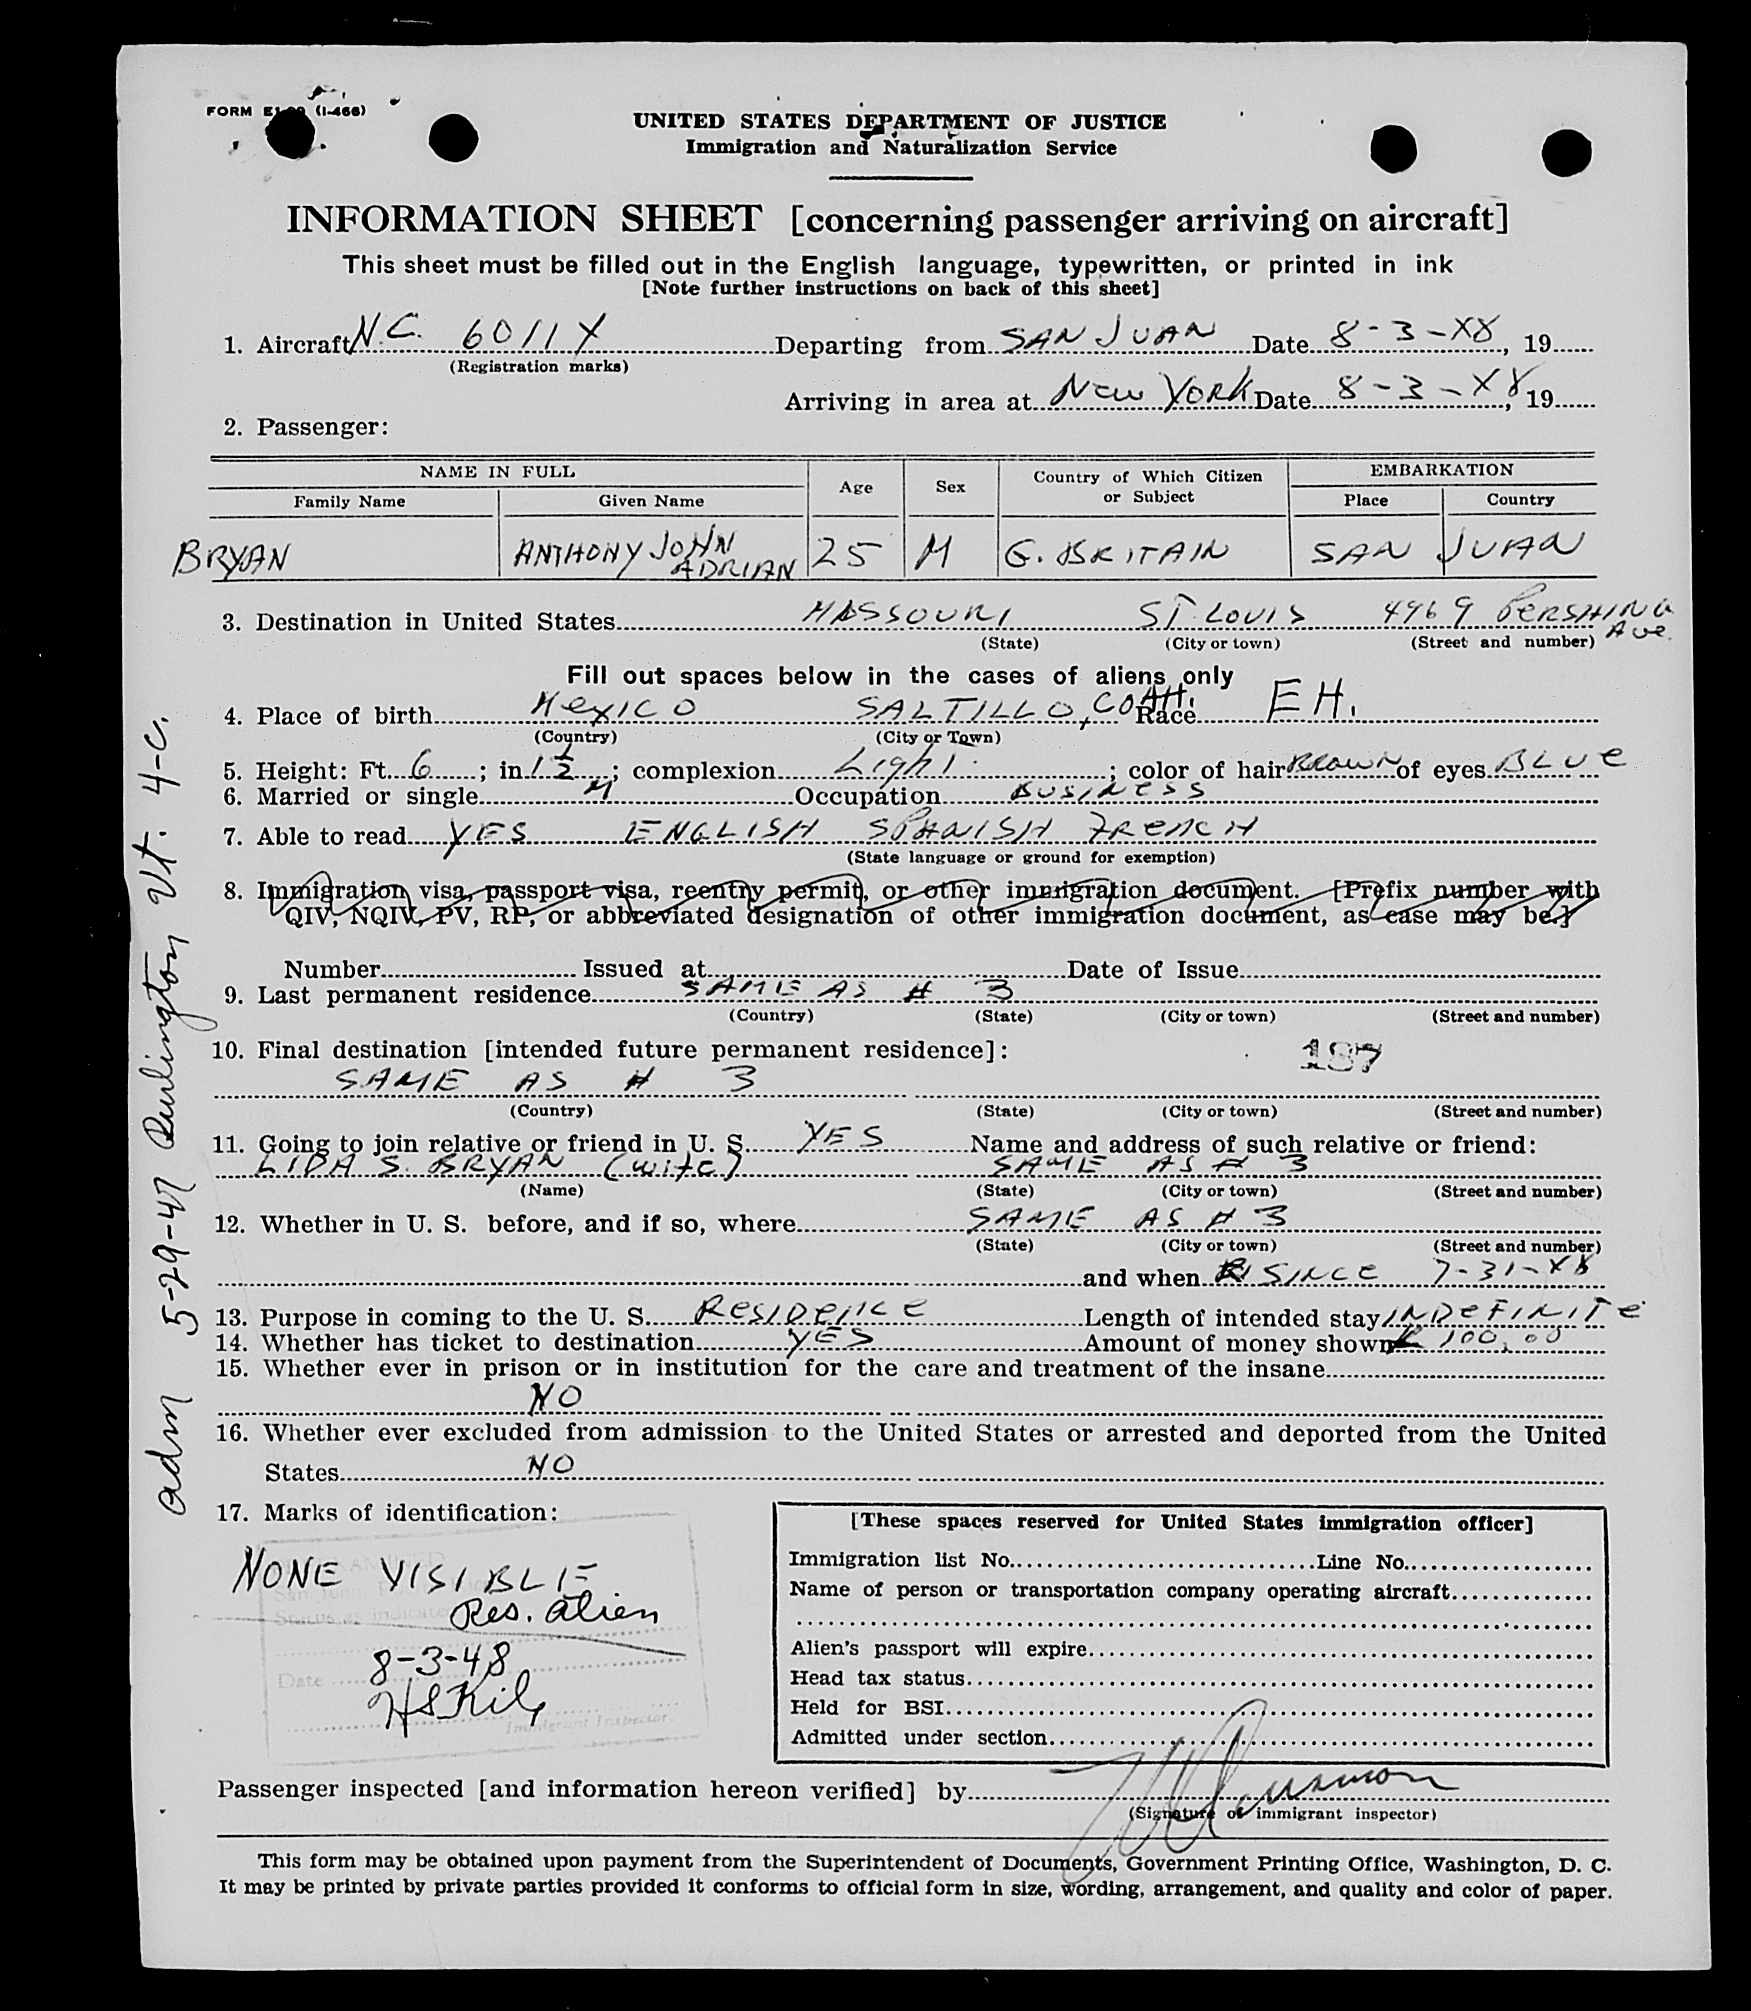 FORM (I-466)
UNITED STATES DEPARTMENT OF JUSTICE
Immigration and Naturalization Service
INFORMATION SHEET [concerning passenger arriving on aircraft]
This sheet must be filled out in the English language, typewritten, or printed in ink
[Note further instructions on back of this sheet]
1. Aircraft N.C. 6011X Departing from SAN JUAN Date 8-3-X8, 19
(Registration marks)
Arriving in area at New YORK Date 8-3-X8, 19
2. Passenger:
NAME IN FULL Age Sex Country of Which Citizen or Subject EMBARKATION
Family Name Given Name Place Country
BRYAN ANTHONY JOHN ADRIAN 25 M G. BRITAIN SAN JUAN
3. Destination in United States MASSOURI ST. LOUIS 4969 PERSHING Ave.
(State) (City or town) (Street and number)
Fill out spaces below in the cases of aliens only
4. Place of birth MexICO SALTILLO, COAH. Race EH.
(Country) (City or Town)
5. Height: Ft. 6; in. 1 1/2; complexion Light; color of hair BROWN of eyes BLUe
6. Married or single M Occupation BUSINeSS
7. Able to read YES ENGLISH SPANISH FRENCH
(State language or ground for exemption)
8. Immigration visa, passport visa, reentry permit, or other immigration document. [Prefix number with
QIV, NQIV, PV, RP, or abbreviated designation of other immigration document, as case may be.]
Number Issued at Date of Issue
9. Last permanent residence SAME AS # 3
(Country) (State) (City or town) (Street and number)
10. Final destination [intended future permanent residece]: 187
SAME AS # 3
(Country) (State) (City or town) (Street and number)
11. Going to join relative or friend in U. S. YES Name and address of such relative or friend:
LIDA S. BRYAN (wife) SAME AS # 3
(Name) (State) (City or town) (Street and number)
12. Whether in U. S. before, and if so, where SAME AS # 3
(State) (City or town) (Street and number)
and when SINCE 7-31-X8
13. Purpose in coming to the U. S. ReSIDeNCe Length of intended stay INDeFINITe
14. Whether has ticket to destination YES Amount of money shown 100.00
15. Whether ever in prison or in institution for the care and treatment of the insane
NO
16. Whether ever excluded from admission to the United States or arrested and deported from the United
States NO
17. Marks of identification:
NONE VISIBLE
Res. alien
Date 8-3-48
Immigrant Inspector
[These spaces reserved for United States immigration officer]
Immigration list No. Line No.
Name of person or transportation company operating aircraft
Alien's passport will expire
Head tax status
Held for BSI
Admitted under section
Passenger inspected [and information hereon verified] by
(Signature of immigrant inspector)
This form may be obtained upon payment from the Superintendent of Documents, Government Printing Office, Washington, D. C.
It may be printed by private parties provided it conforms to official form in size, wording, arrangement, and quality and color of paper.
adm 5-29-47 Burlington Vt. 4-c.